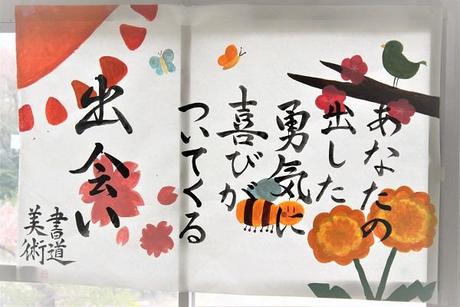 あなたの
出した
勇気に
喜びが
ついてくる
出会い
書道
美術